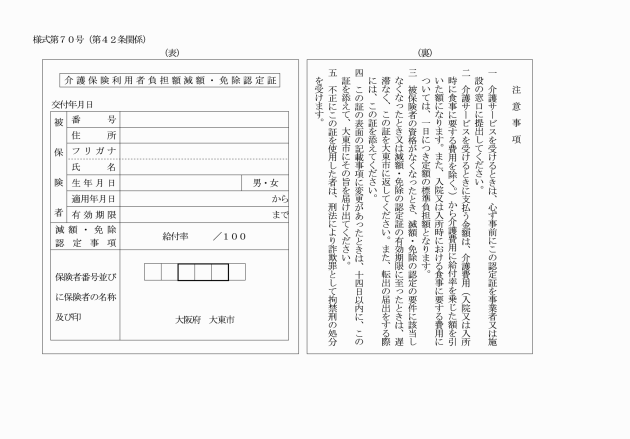 様式第７０号（第４２条関係）
（表）
介護保険利用者負担額減額・免除認定証
交付年月日
被保険者
番号
住所
フリガナ
氏名
生年月日
男・女
適用年月日
から
有効期限
まで
減額・免除
認定事項
給付率　／１００
保険者番号並び
に保険者の名称
及び印
大阪府　大東市
（裏）
注意事項
一　介護サービスを受けるときは、必ず事前にこの認定証を事業者又は施
設の窓口に提出してください。
二　介護サービスを受けるときに支払う金額は、介護費用（入院又は入所
時に食事に要する費用を除く。）から介護費用に給付率を乗じた額を引
いた額になります。また、入院又は入所時における食事に要する費用に
ついては、一日につき定額の標準負担額となります。
三　被保険者の資格がなくなったとき、減額・免除の認定の要件に該当し
なくなったとき又は減額・免除の認定証の有効期限に至ったときは、遅
滞なく、この証を大東市に返してください。また、転出の届出をする際
には、この証を添えてください。
四　この証の表面の記載事項に変更があったときは、十四日以内に、この
証を添えて、大東市にその旨を届け出てください。
五　不正にこの証を使用した者は、刑法により詐欺罪として拘禁刑の処分
を受けます。